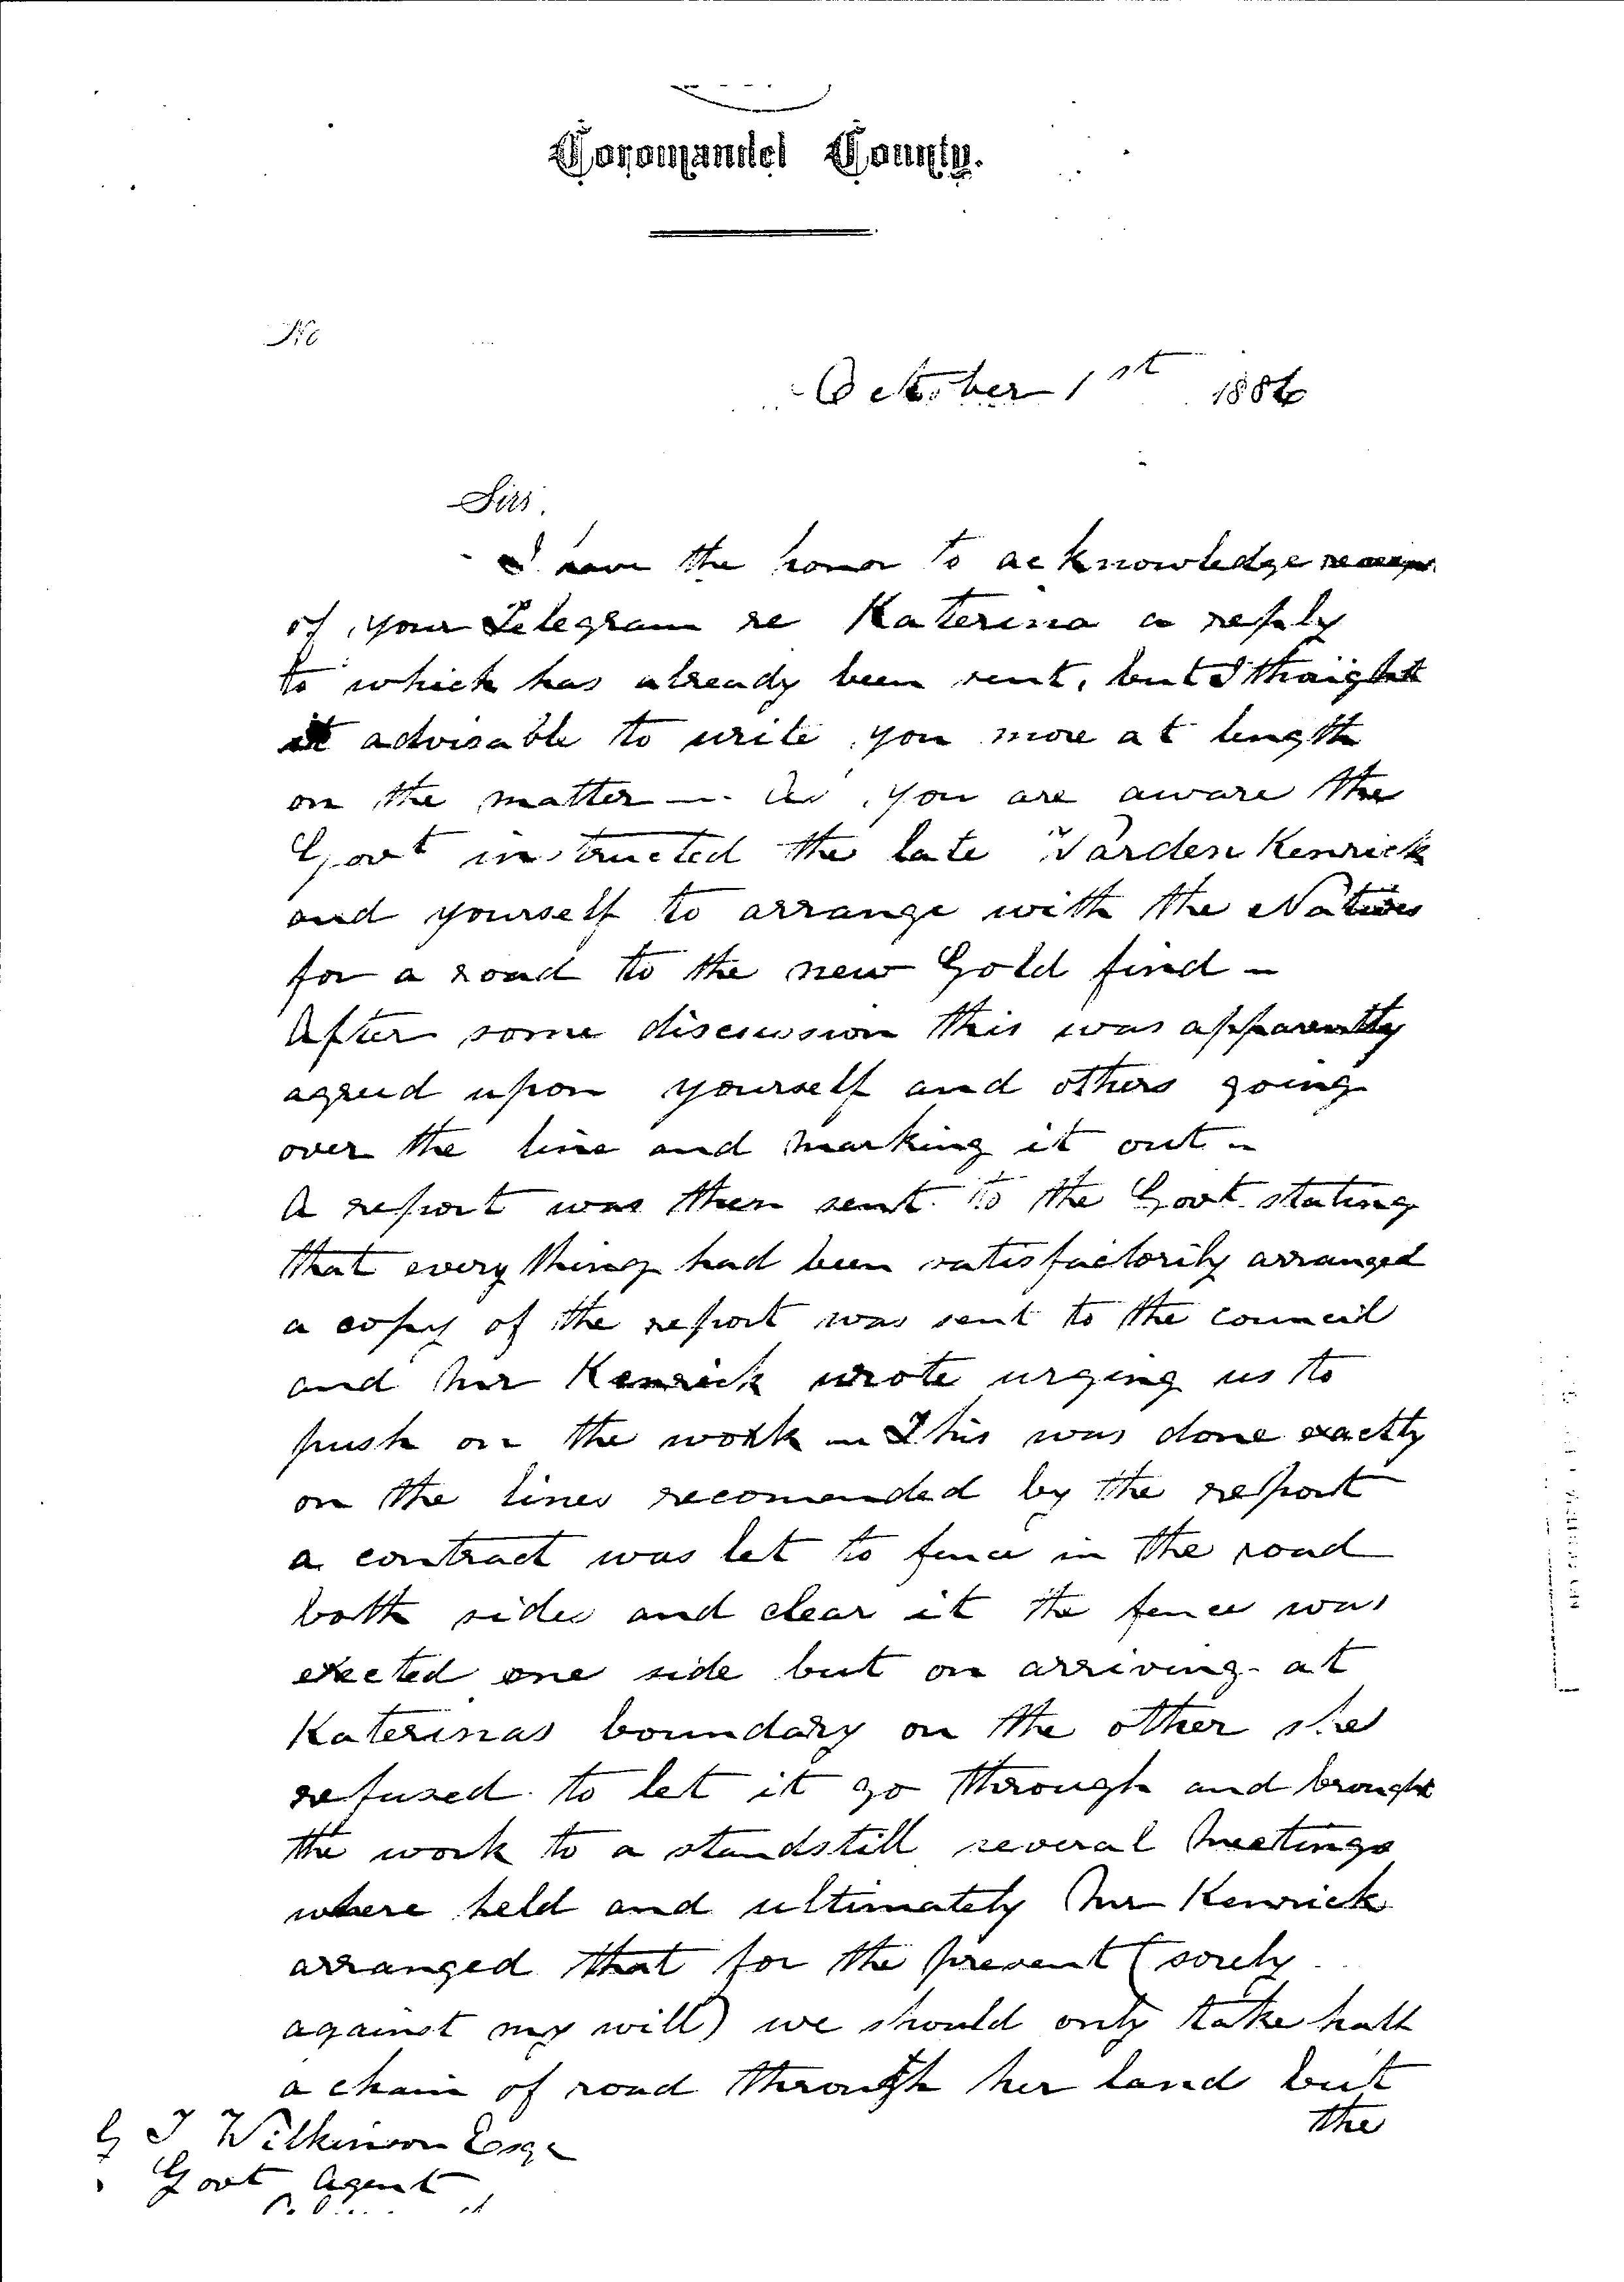 Coromandel County.
No
October 1st 1886
Sir,
I have the honor to acknowledge receipt
of your Telegram re Katerina a reply
to which has already been sent, but I thought
it advisable to write you more at length
on the matter — As you are aware the
Govt instructed the late Warden Kenrick
and yourself to arrange with the Natives
for a road to the new Gold find —
After some discussion this was apparently
agreed upon yourself and others going
over the line and marking it out —
A report was then sent to the Govt stating
that every thing had been satisfactorily arranged
a copy of the report was sent to the council
and Mr Kenrick wrote urging us to
push on the work — This was done exactly
on the lines recomended by the report
a contract was let to fence in the road
both sides and clear it the fence was
erected one side but on arriving at
Katerinas boundary on the other she
refused to let it go through and brought
the work to a standstill several Meetings
where held and ultimately Mr Kenrick
arranged that for the present (sorely
against my will) we should only take half
a chain of road through her land but
the
G T Wilkinson Esqr
Govt Agent